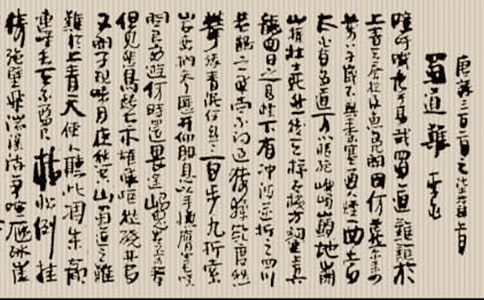 唐詩三百首之
蜀道難 李白
噫吁嚱危乎高哉蜀道之難難於
上青天蚕丛及魚凫開國何茫然尔來四
万八千歲不與秦塞通人煙西當
太白有鸟道可以橫絕峨嵋巔地崩
山摧壮士死然後天梯石棧方鉤連上有
六龍回日之高标下有冲波逆折之回川
黃鶴之飛尚不得过猿猱欲度愁
攀援青泥何盤盤百步九折萦
岩峦捫參歷井仰脅息以手撫膺坐長嘆
問君西遊何時還畏途巉岩不可攀
但見悲鳥號古木雄飛雌從繞林間
又聞子規啼夜月愁空山蜀道之難
難於上青天使人聽此凋朱顏
連峰去天不盈尺枯松倒挂
倚絕壁飛湍瀑流爭喧豗砯崖